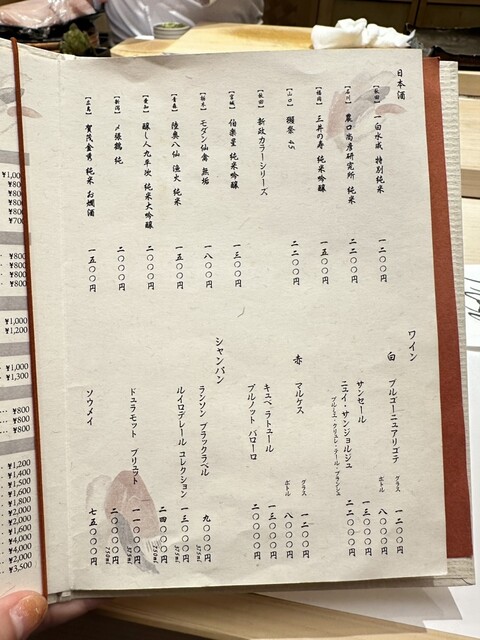 日本酒
【秋田】 一白水成 特別純米 一二〇〇円
【石川】 農口尚彦研究所 純米 二二〇〇円
【福岡】 三井の寿 純米吟醸 一五〇〇円
【山口】 獺祭 45 二二〇〇円
【秋田】 新政カラーシリーズ
【宮城】 伯楽星 純米吟醸 一三〇〇円
【栃木】 モダン仙禽 無垢 一八〇〇円
【青森】 陸奥八仙 漁火 純米 一五〇〇円
【愛知】 醸し人九平次 純米大吟醸 二〇〇〇円
【新潟】 〆張鶴 純 二〇〇〇円
【広島】 賀茂金秀 純米 お燗酒 一五〇〇円
ワイン
白 ブルゴーニュアリゴテ グラス 一二〇〇円
ボトル 八〇〇〇円
サンセール 一三〇〇〇円
ニュイ・サンジョルジュ 二二〇〇〇円
赤 マルケス グラス 一二〇〇円
ボトル 八〇〇〇円
キュベ ラトュール 一三〇〇〇円
ブルノット バローロ 二〇〇〇〇円
シャンパン
ランソン ブラックラベル 九〇〇〇円 375ml
ルイロデレール コレクション 一三〇〇〇円 375ml
二四〇〇〇円 750ml
ドュラモット ブリュット 一一〇〇〇円 375ml
二〇〇〇〇円 750ml
ソウメイ 七五〇〇〇円
¥1,000
¥800
¥800
¥800
¥700
¥800
¥800
¥800
¥1,000
¥1,200
¥1,000
¥1,300
¥800
¥800
¥800
¥1,200
¥1,400
¥1,500
¥1,600
¥1,800
¥2,000
¥2,000
¥1,600
¥4,000
¥4,000
¥2,000
¥3,500